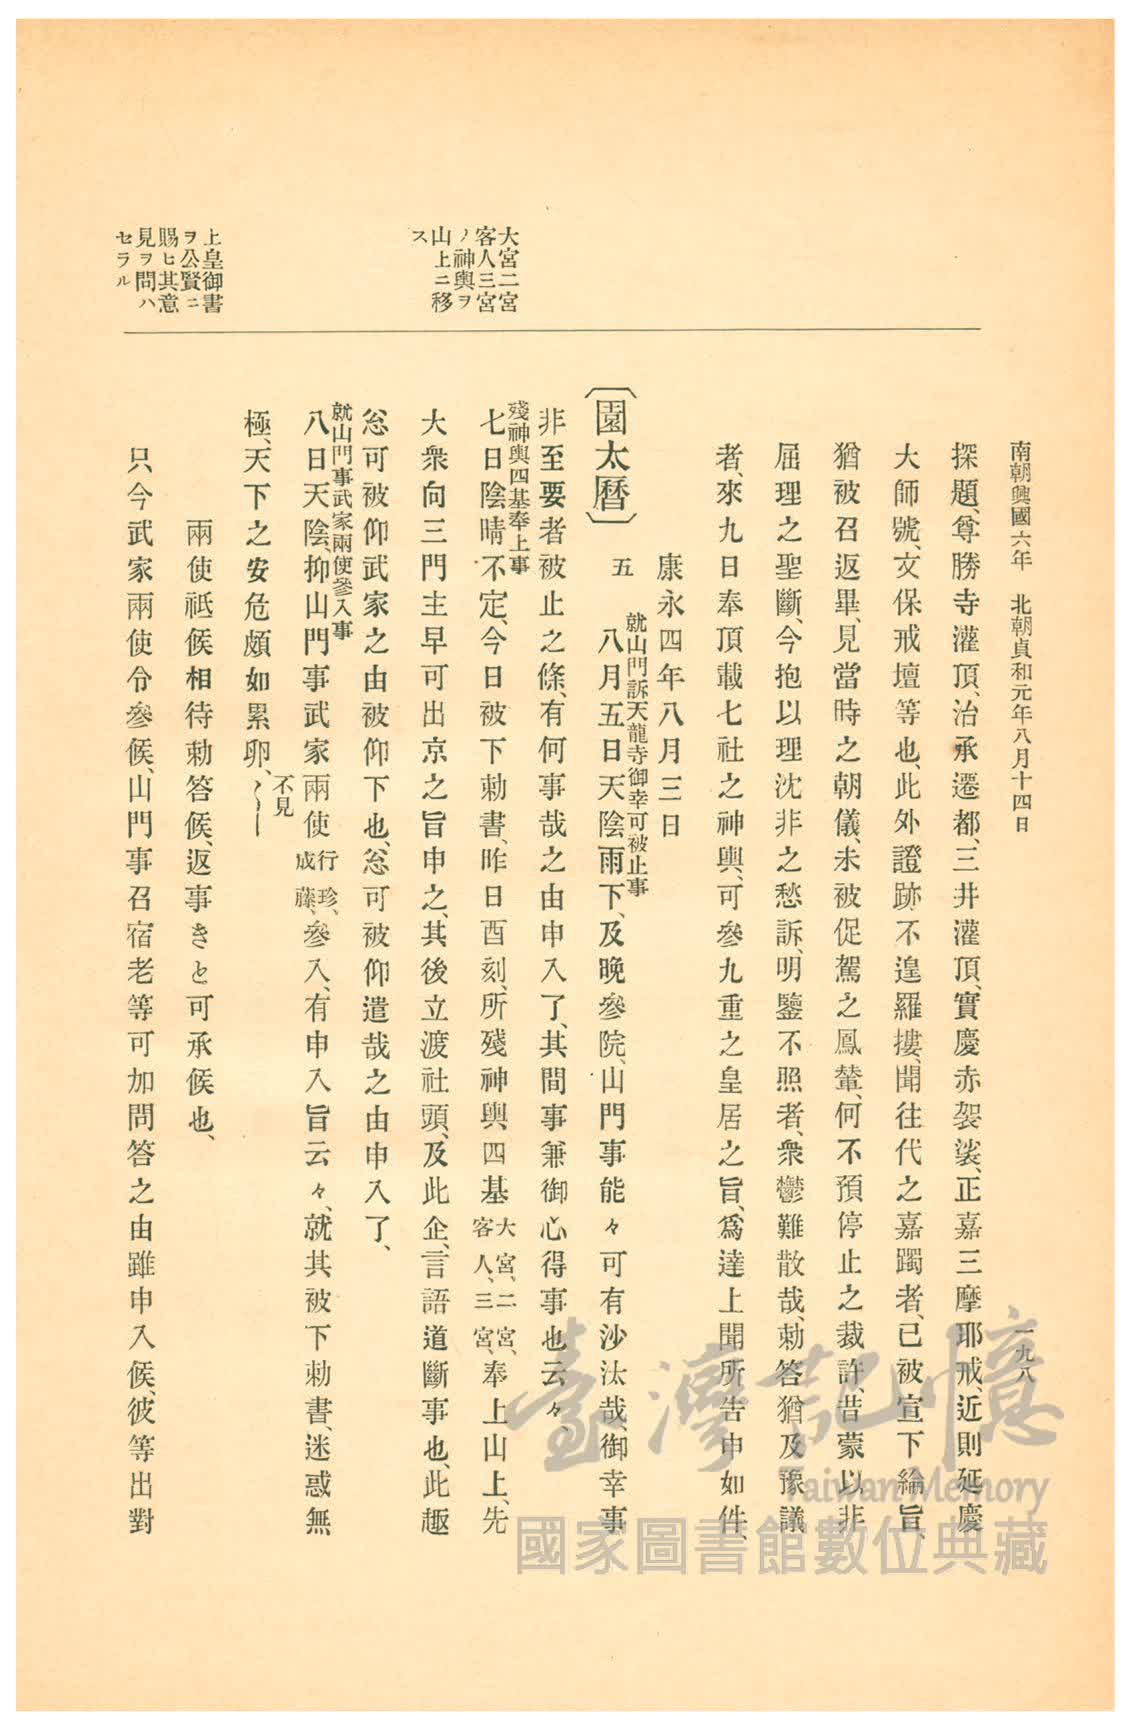 南朝興國六年 北朝貞和元年八月十四日
一九八
探題、尊勝寺灌頂、治承遷都、三井灌頂、實慶赤袈裟、正嘉三摩耶戒、近則延慶
大師號、文保戒壇等也、此外證跡不遑羅摟、聞往代之嘉躅者、已被宣下綸旨、
猶被召返畢、見當時之朝儀、未被促駕之鳳輦、何不預停止之裁許、昔蒙以非
屈理之聖斷、今抱以理沈非之愁訴、明鑒不照者、衆鬱難散哉、勅答猶及豫議
者、來九日奉頂戴七社之神輿、可參九重之皇居之旨、爲達上聞所告申如件、
康永四年八月三日
〔園太曆〕
五
就山門訴天龍寺御幸可被止事
八月五日天陰雨下、及晚參院、山門事能々可有沙汰哉、御幸事
非至要者被止之條、有何事哉之由申入了、其間事兼御心得事也云々、
殘神輿四基奉上事
七日陰晴不定、今日被下勅書、昨日酉刻、所殘神輿四基大宮、二宮、客人、三宮、奉上山上、先
大宮二宮
客人三宮
ノ神輿ヲ
山上ニ移
ス
大衆向三門主早可出京之旨申之、其後立渡社頭、及此企、言語道斷事也、此趣
忩可被仰武家之由被仰下也、忩可被仰遣哉之由申入了、
就山門事武家兩使參入事
八日天陰、抑山門事武家兩使行珍、成藤、參入、有申入旨云々、就其被下勅書、迷惑無
不見
極、天下之安危頗如累卵、
兩使祗候相待勅答候、返事きと可承候也、
上皇御書
ヲ公賢ニ
賜ヒ其意
見ヲ問ハ
セラル
只今武家兩使令參候、山門事召宿老等可加問答之由雖申入候、彼等出對
臺灣記憶
Taiwan Memory
國家圖書館數位典藏